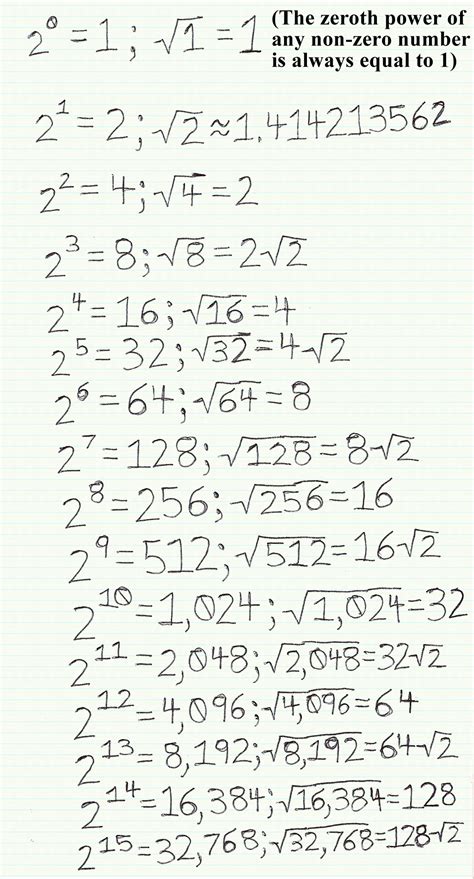 2⁰ = 1; √1 = 1 (The zeroth power of
any non-zero number
is always equal to 1)
2¹ = 2; √2 ≈ 1.414213562
2² = 4; √4 = 2
2³ = 8; √8 = 2√2
2⁴ = 16; √16 = 4
2⁵ = 32; √32 = 4√2
2⁶ = 64; √64 = 8
2⁷ = 128; √128 = 8√2
2⁸ = 256; √256 = 16
2⁹ = 512; √512 = 16√2
2¹⁰ = 1,024; √1,024 = 32
2¹¹ = 2,048; √2,048 = 32√2
2¹² = 4,096; √4,096 = 64
2¹³ = 8,192; √8,192 = 64√2
2¹⁴ = 16,384; √16,384 = 128
2¹⁵ = 32,768; √32,768 = 128√2